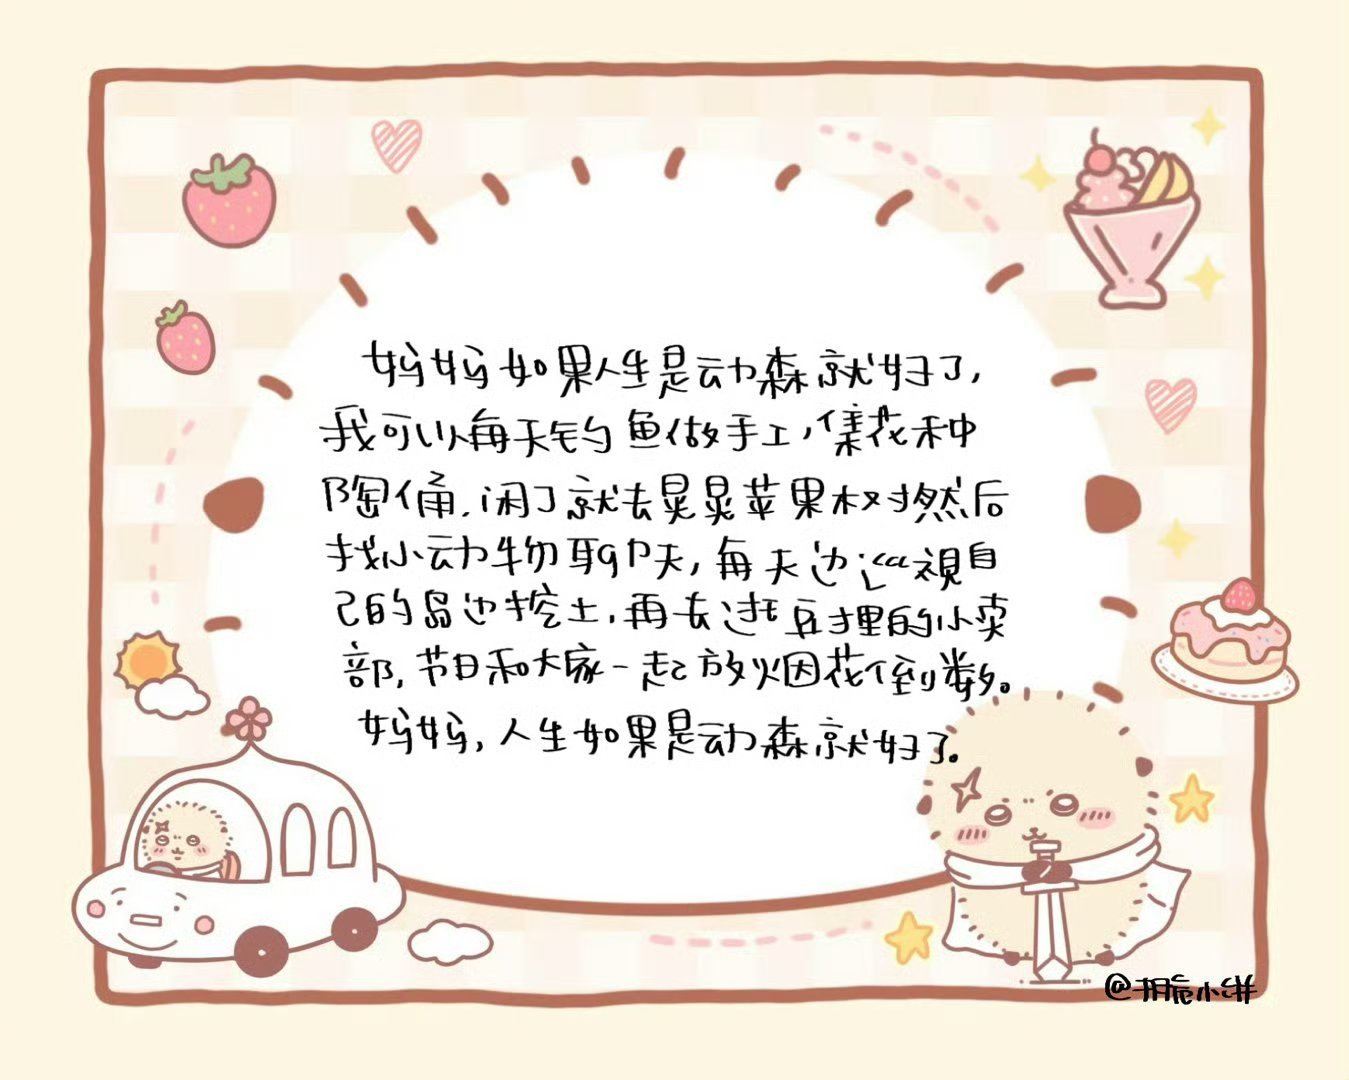 妈妈如果人生是动森就好了,
我可以每天钓鱼做手工,集花种
陶俑,闲了就去晃晃苹果树然后
找小动物聊天,每天边巡視自
己的岛边挖土,再去逛豆狸的小卖
部,节日和大家一起放烟花倒数。
妈妈,人生如果是动森就好了。
小羊